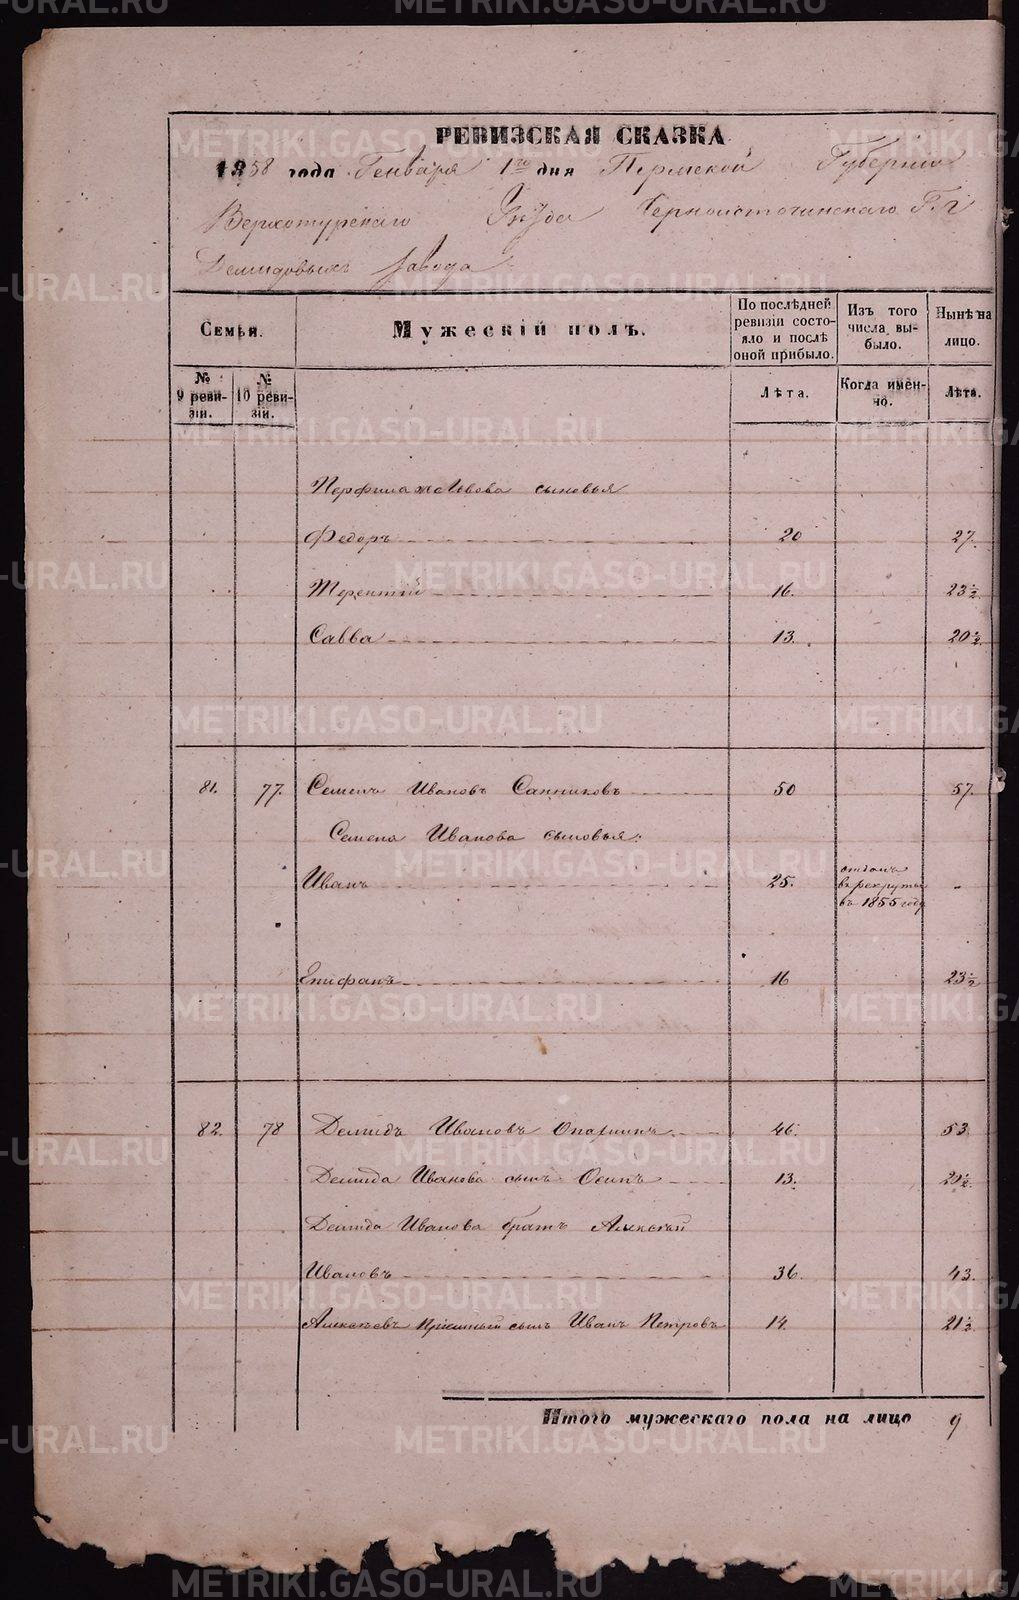 РЕВИЗСКАЯ СКАЗКА
1858 года Генваря 1го дня Пермской Губернии
Верхотурскаго Уѣзда Черноисточинскаго Г.г
Демидовыхъ завода
Семьи.
Мужескій полъ.
По послѣдней ревизіи состояло и послѣ оной прибыло.
Изъ того числа выбыло.
Нынѣ на лицо.
№ 9 ревизіи.
№ 10 ревизіи.
Лѣта.
Когда именно.
Лѣта.
Перфила Львова сыновья
Федоръ 20 27.
Терентій 16. 23½
Савва 13. 20½
81. 77. Семенъ Ивановъ Санниковъ 50 57.
Семена Иванова сыновья:
Иванъ 25. отданъ въ рекруты въ 1855 году -
Епифанъ 16 23½
82. 78 Демидъ Ивановъ Опаринъ 46. 53
Демида Иванова сынъ Осипъ 13. 20½
Демида Иванова братъ Алексѣй
Ивановъ 36. 43.
Алексѣевъ пріемный сынъ Иванъ Петровъ 14. 21½
Итого мужескаго пола на лицо 9
METRIKI.GASO-URAL.RU